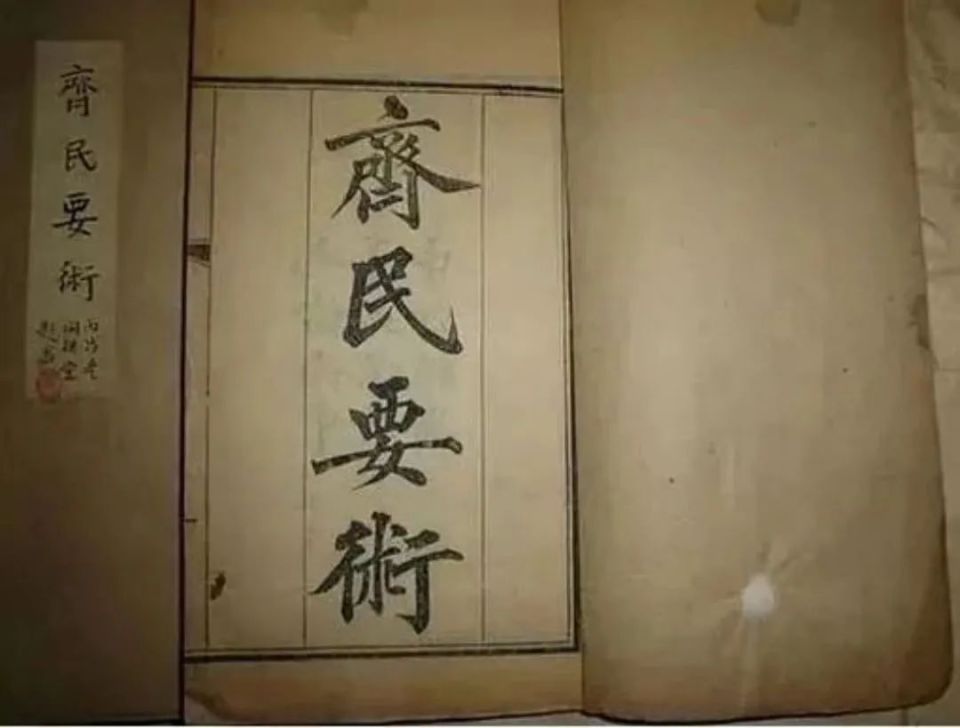 齊民要術
齊民要術
題